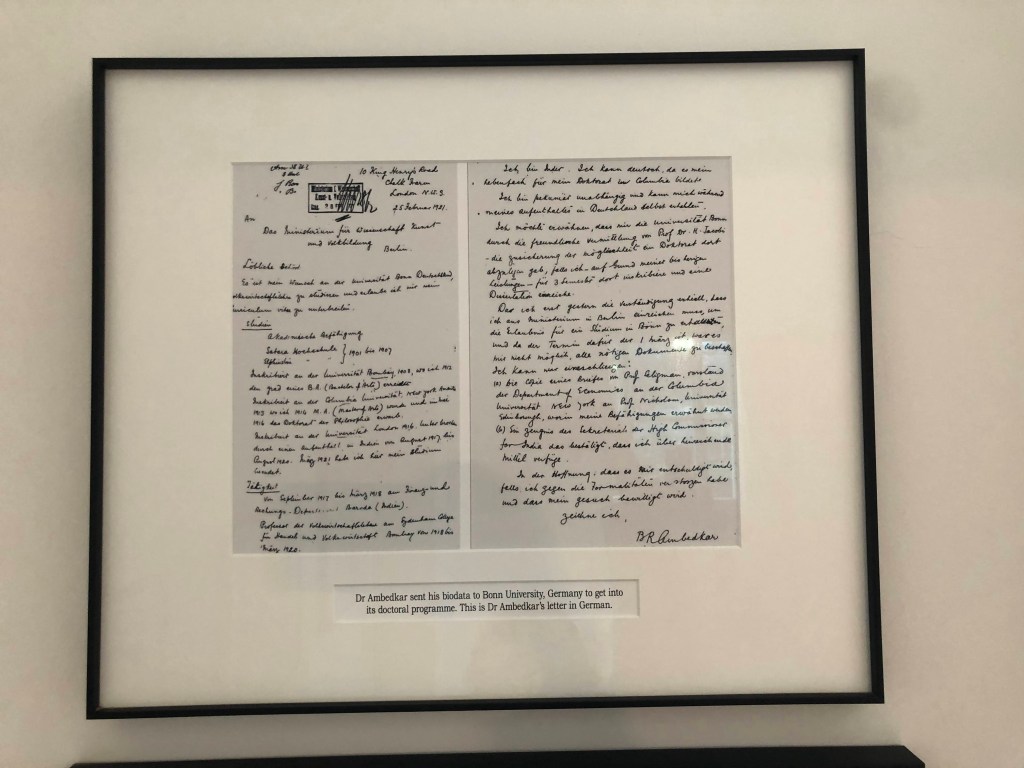 10 King Henry's Road
Chalk Farm
London N.W.3.
25 Februar 1921.
An
Das Ministerium für Wissenschaft Kunst
und Volkbildung
Berlin.
Es ist mein Wunsch an der Universität Bonn Deutschland,
zu studieren und erlaube ich mir mein
curriculum vitae zu unterbreiten.
Studien
Akademische Befähigung
Satara Hochschule
Elphinstone } 1901 bis 1907
Inskribiert an der Universität Bombay, 1908, wo ich 1912
den grad eines B.A. (Bachelor of Arts) erreichte
Inskribiert an der Columbia Universität, New York
1913 wo ich 1915 M.A. (Master of Arts) wurde und
1916 das Doctorat der Philosophie erwarb.
Inskribiert an der Universität London 1916.
durch einen Aufenthalt in Indien von August 1917 bis
August 1920. März 1921 habe ich hier mein Studium
beendet.
Tätigkeit
Von September 1917 bis März 1918 am Finanz und
Rechnungs- Baroda (Indien).
Professor der Volkswirtschaftslehre am Sydenham College
für Handel und Volkswirtschaft Bombay von 1918 bis
März 1920.
Ich bin Inder. Ich kann deutsch, da es mein
Nebenfach für mein Doktorat in Columbia bildete
Ich bin pekuniär unabhängig und kann mich während
meines Aufenthaltes in Deutschland selbst erhalten.
Ich möchte erwähnen, dass mir die Universität Bonn
durch die freundliche Vermittlung von Prof Dr. H. Jacobi
die Zusicherung der Möglichkeit ein Doktorat dort
abzulegen gab, falls ich - auf Grund meines bisherigen
Leistungen - für 3 Semester dort inskribiere und eine
Dissertation einreiche.
Da ich erst gestern die Verständigung erhielt, dass
ich ans Ministerium in Berlin einreichen muss, um
die Erlaubnis für ein Studium in Bonn zu erhalten,
und da der Termin dafür der 1 März ist, war es
mir nicht möglich, alle nötigen Dokumente zu beschaffen
Ich kann nur einschliessen:
(a) Die Copie eines Briefes von Prof. Seligman, Vorstand
des Department of Economics an der Columbia
Universität New York an Prof. Nicholson, Universität
Edinburgh, worin meine Befähigungen erwähnt werden
(b) Ein Zeugnis des Sekretariats der High Commissioner
for India das bestätigt, dass ich über hinreichende
Mittel verfüge.
In der Hoffnung, dass es mir entschuldigt wird,
falls ich gegen die Formalitäten verstossen habe
und dass mein Gesuch bewilligt wird.
zeichne ich,
B R Ambedkar
Dr Ambedkar sent his biodata to Bonn University, Germany to get into
its doctoral programme. This is Dr Ambedkar's letter in German.